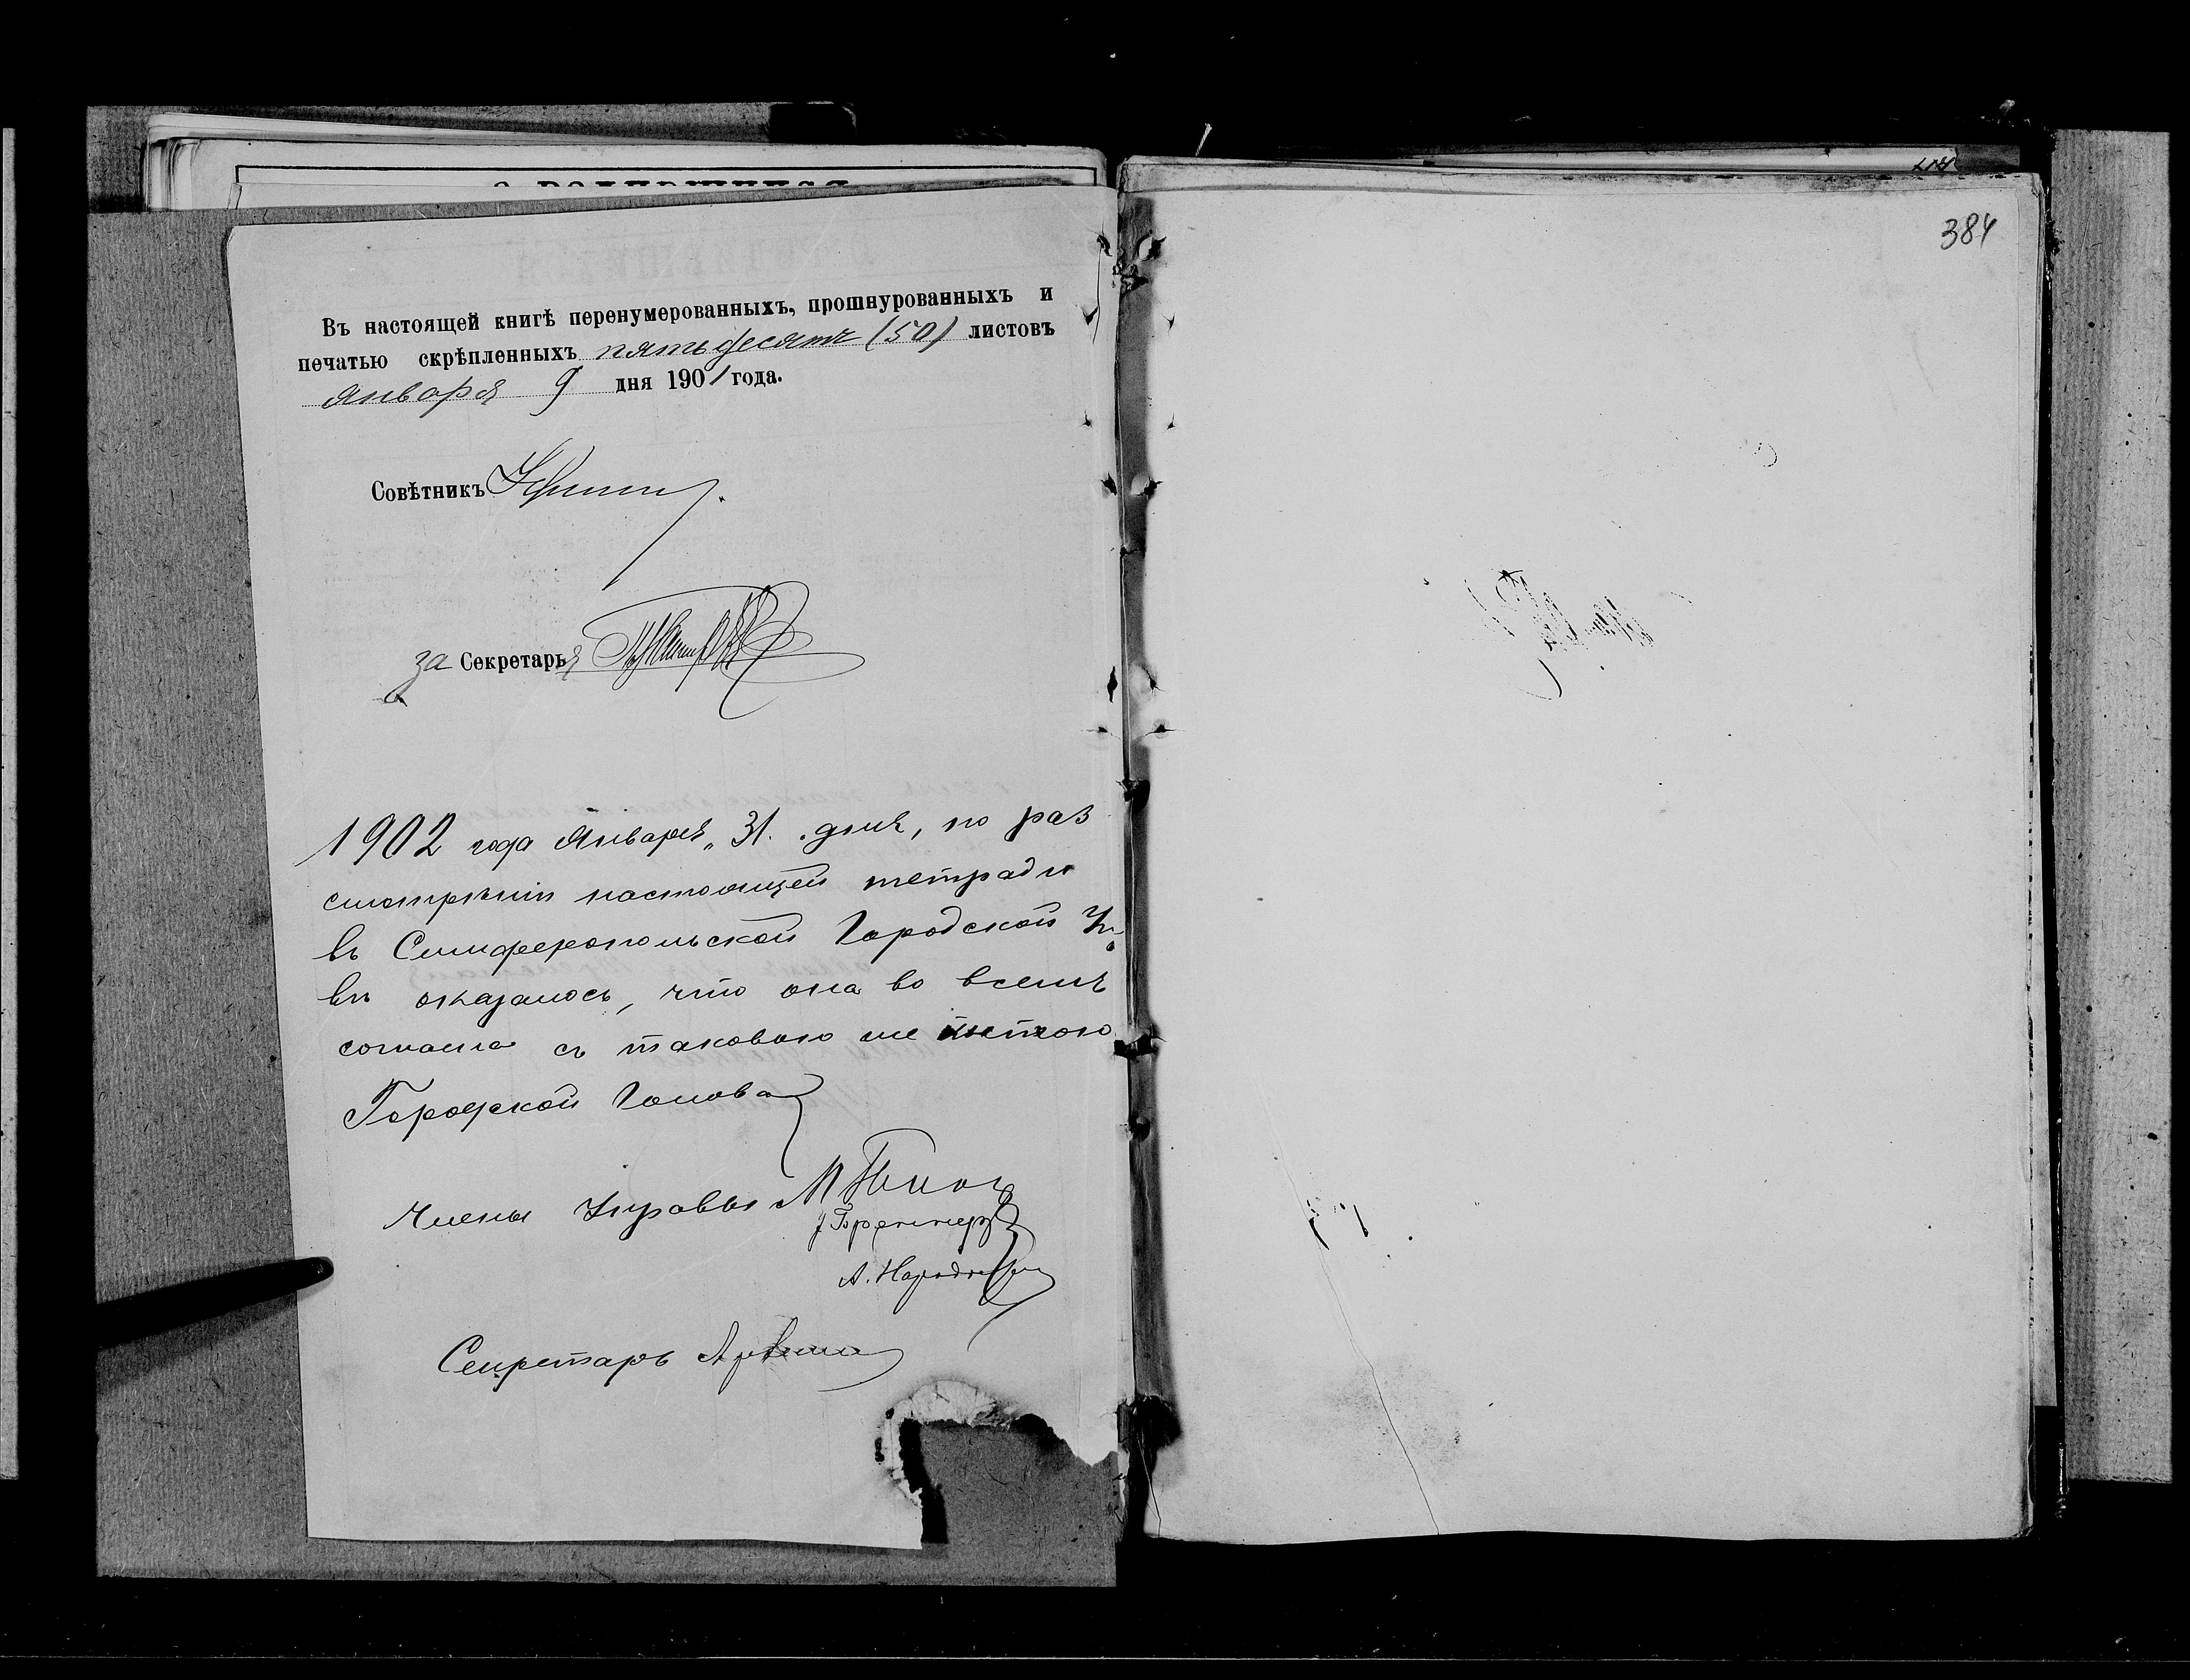 384
Въ настоящей книгѣ перенумерованныхъ, прошнурованныхъ и
печатью скрѣпленныхъ пятьдесятъ (50) листовъ
января 9 дня 1901 года.
Совѣтникъ
за Секретаря
1902 года Января „31. дня, по раз
смотрѣніи настоящей тетради
въ Симферопольской Городской Уп
вѣ оказалось, что она во всемъ
согласна съ таковою же
Городской Голова
Члены Управы
Секретарь